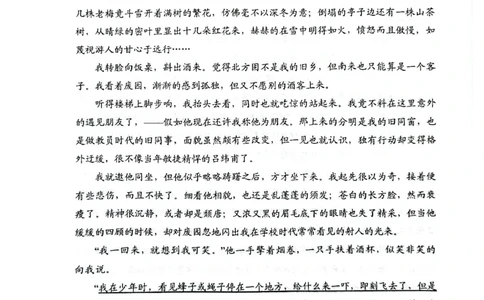 几株老梅竟斗雪开着满树的繁花，仿佛毫不以深冬为意；倒塌的亭子边还有一株山茶
树，从晴绿的密叶里显出十几朵红花来，赫赫的在雪中明得如火，愤怒而且傲慢，如
蔑视游人的甘心于远行……
我转脸向饭桌，斟出酒来。觉得北方固不是我的旧乡，但南来也只能算是一个客
子。我看着废园，渐渐的感到孤独，但又不愿别的酒客上来。
听得楼梯上脚步响，我抬头去看，同时也就吃惊的站起来。我竟不料在这里意外
的遇见朋友了，——假如他现在还许我称他为朋友。那上来的分明是我的旧同窗，也
是做教员时代的旧同事，面貌虽然颇有些改变，但一见也就认识，独有行动却变得格
外迂缓，很不像当年敏捷精悍的吕纬甫了。
我就邀他同坐，但他似乎略略踌躇之后，方才坐下来。我起先很以为奇，接着便
有些悲伤，而且不快了。细看他相貌，也还是乱蓬蓬的须发；苍白的长方脸，然而衰
瘦了。精神很沉静，或者却是颓唐；又浓又黑的眉毛底下的眼睛也失了精采，但当他
缓缓的四顾的时候，却对废园忽地闪出我在学校时代常常看见的射人的光来。
“我一回来，就想到我可笑。”他一手擎着烟卷，一只手扶着酒杯，似笑非笑的
向我说。
“我在少年时，看见蜂子或蝇子停在一个地方，给什么来一吓，即刻飞去了，但是